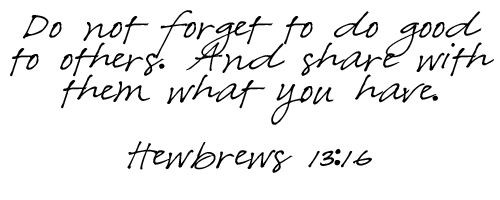 Do not forget to do good
to others. And share with
them what you have.
Hewbrews 13:16